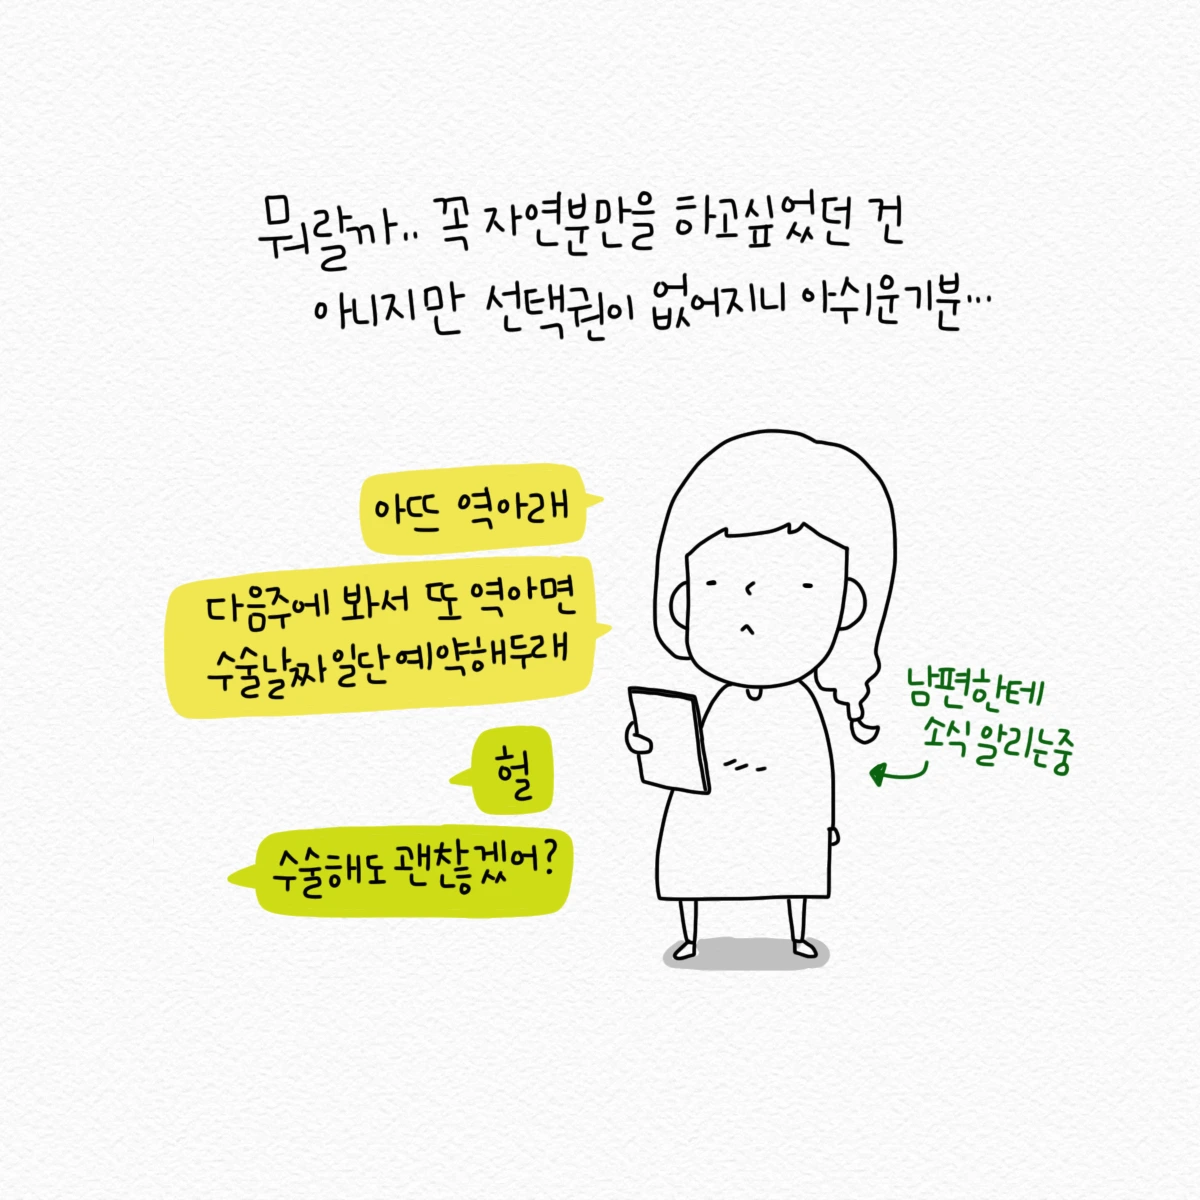 뭐랄까.. 꼭 자연분만을 하고싶었던 건
아니지만 선택권이 없어지니 아쉬운기분...
아뜨 역아래
다음주에 봐서 또 역아면
수술날짜 일단 예약해두래
헐
수술해도 괜찮겠어?
남편한테
소식 알리는중